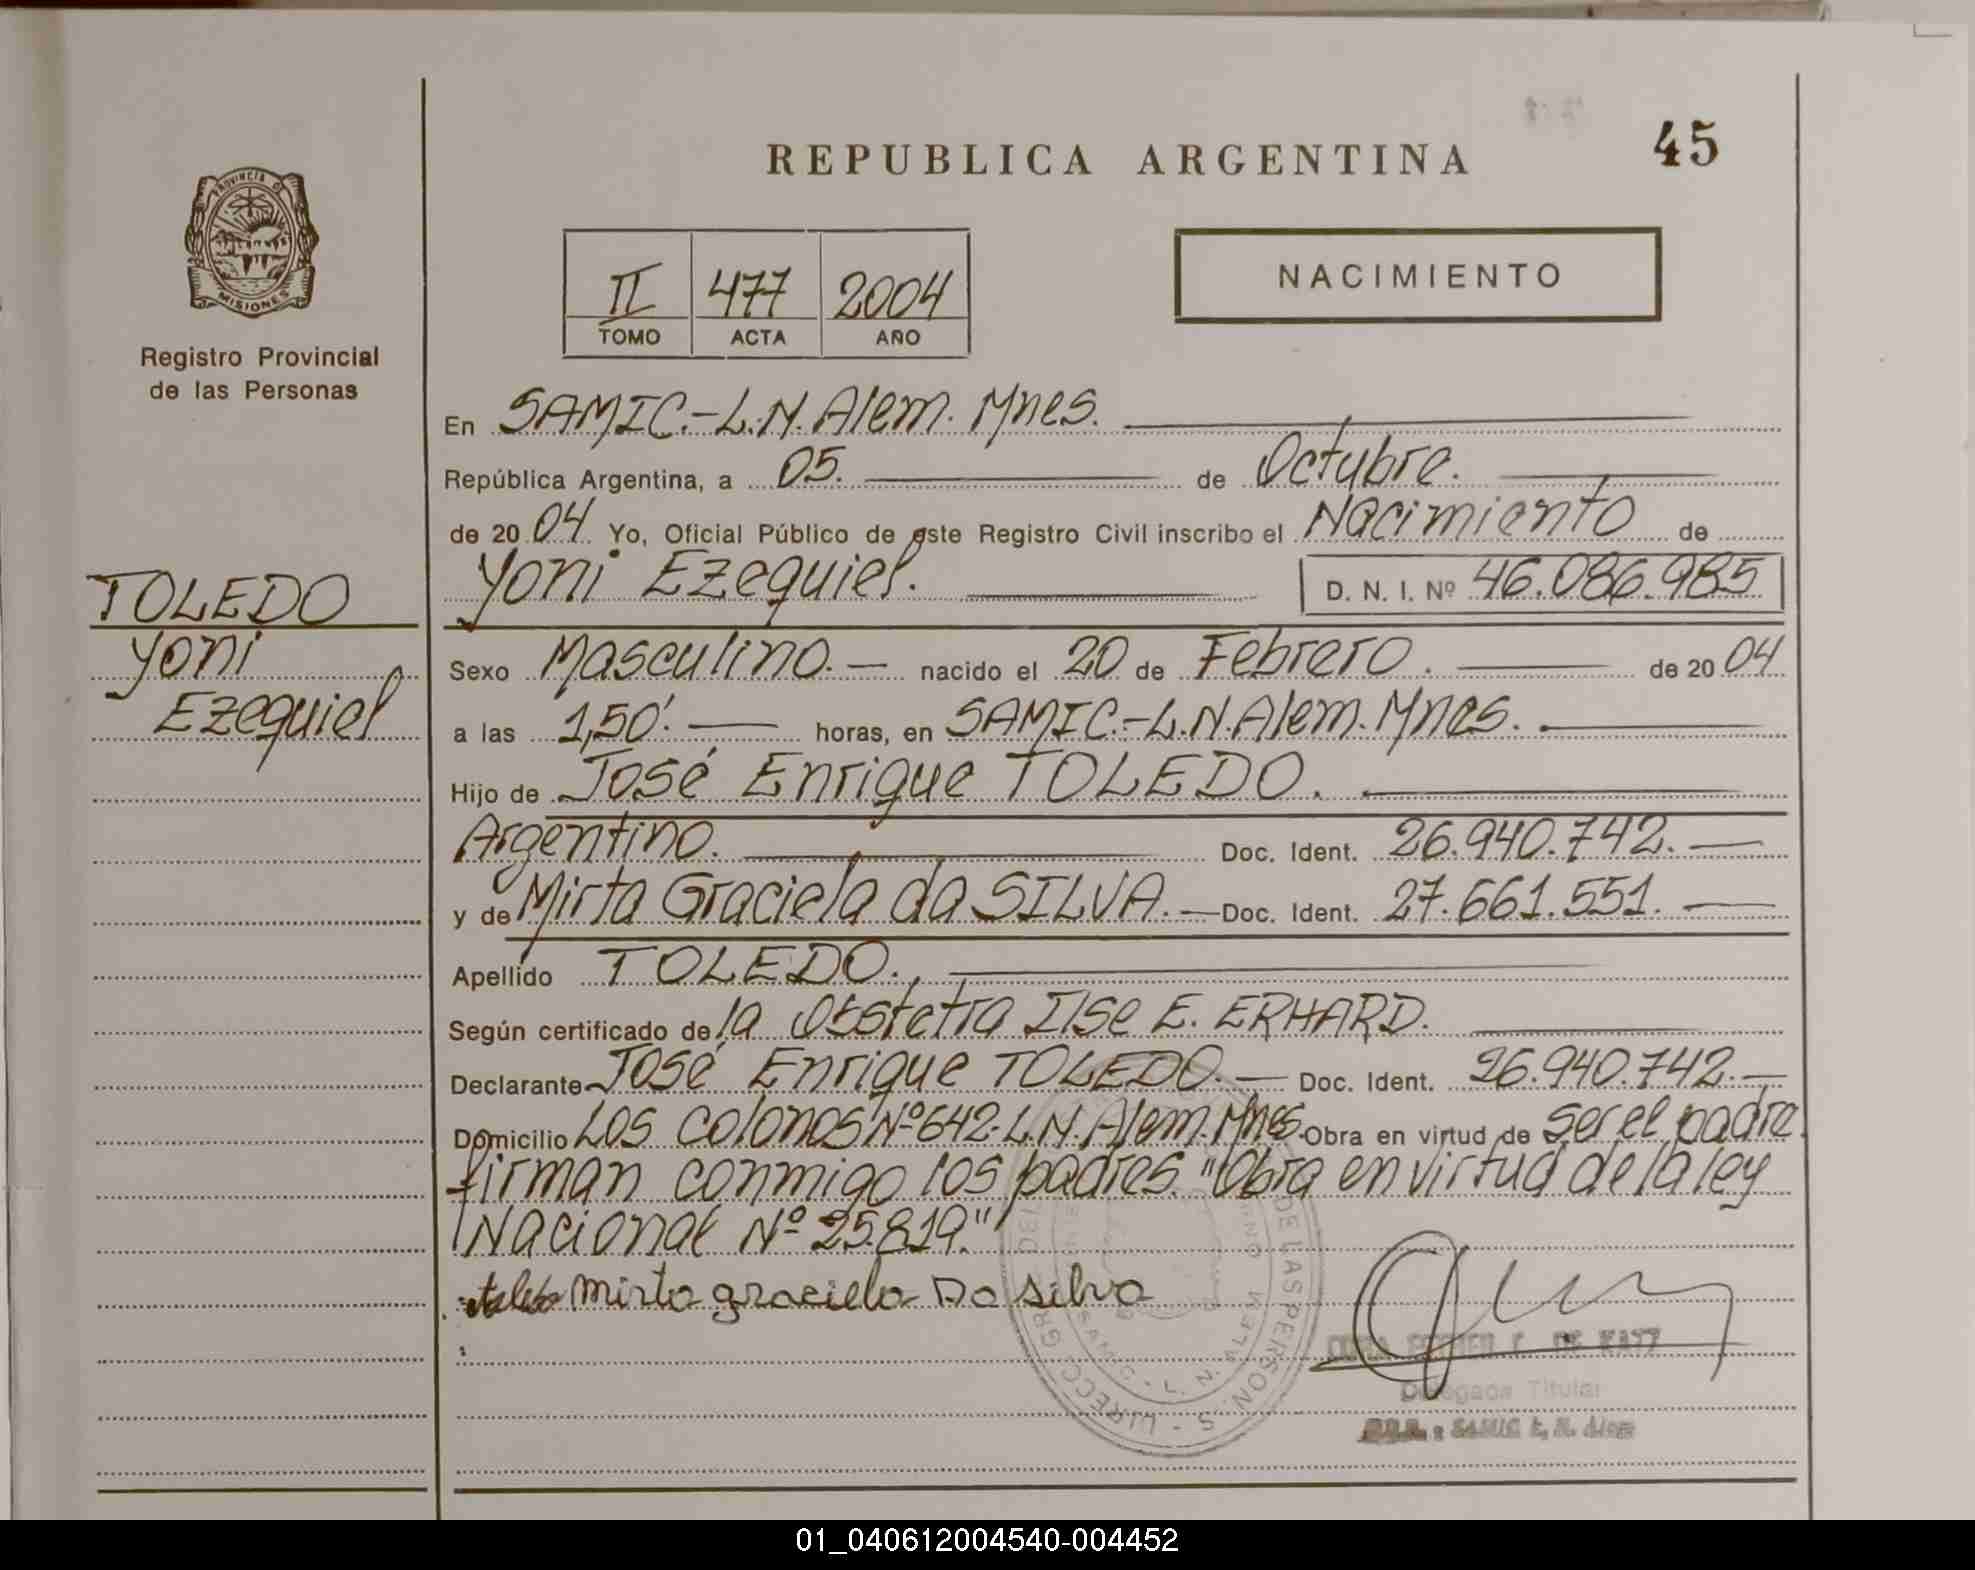 45
REPUBLICA ARGENTINA
PROVINCIA DE
MISIONES
Registro Provincial
de las Personas
II 477 2004
TOMO ACTA AÑO
NACIMIENTO
En SAMIC.-L.N.Alem. Mnes.
República Argentina, a 05. de Octubre.
de 2004. Yo, Oficial Público de este Registro Civil inscribo el Nacimiento de
Yoni Ezequiel. D. N. I. Nº 46.086.985
TOLEDO
Yoni
Ezequiel
Sexo Masculino.- nacido el 20 de Febrero. de 2004
a las 1,50'. horas, en SAMIC.-L.N.Alem. Mnes.
Hijo de José Enrique TOLEDO.
Argentino. Doc. Ident. 26.940.742.-
y de Mirta Graciela da SILVA.- Doc. Ident. 27.661.551.-
Apellido TOLEDO.
Según certificado de la Obstetra Ilse E. ERHARD.
Declarante José Enrique TOLEDO.- Doc. Ident. 26.940.742.-
Domicilio Los Colonos Nº 642.L.N.Alem.Mnes. Obra en virtud de ser el padre.
firman conmigo los padres. "Obra en virtud de la ley
Nacional Nº 25.819."
Mirta graciela Da silva
DE LAS PERSON S
SAMIC - L. N. ALEM
Delegada Titular
SAMIC L. N. Alem
01_040612004540-004452